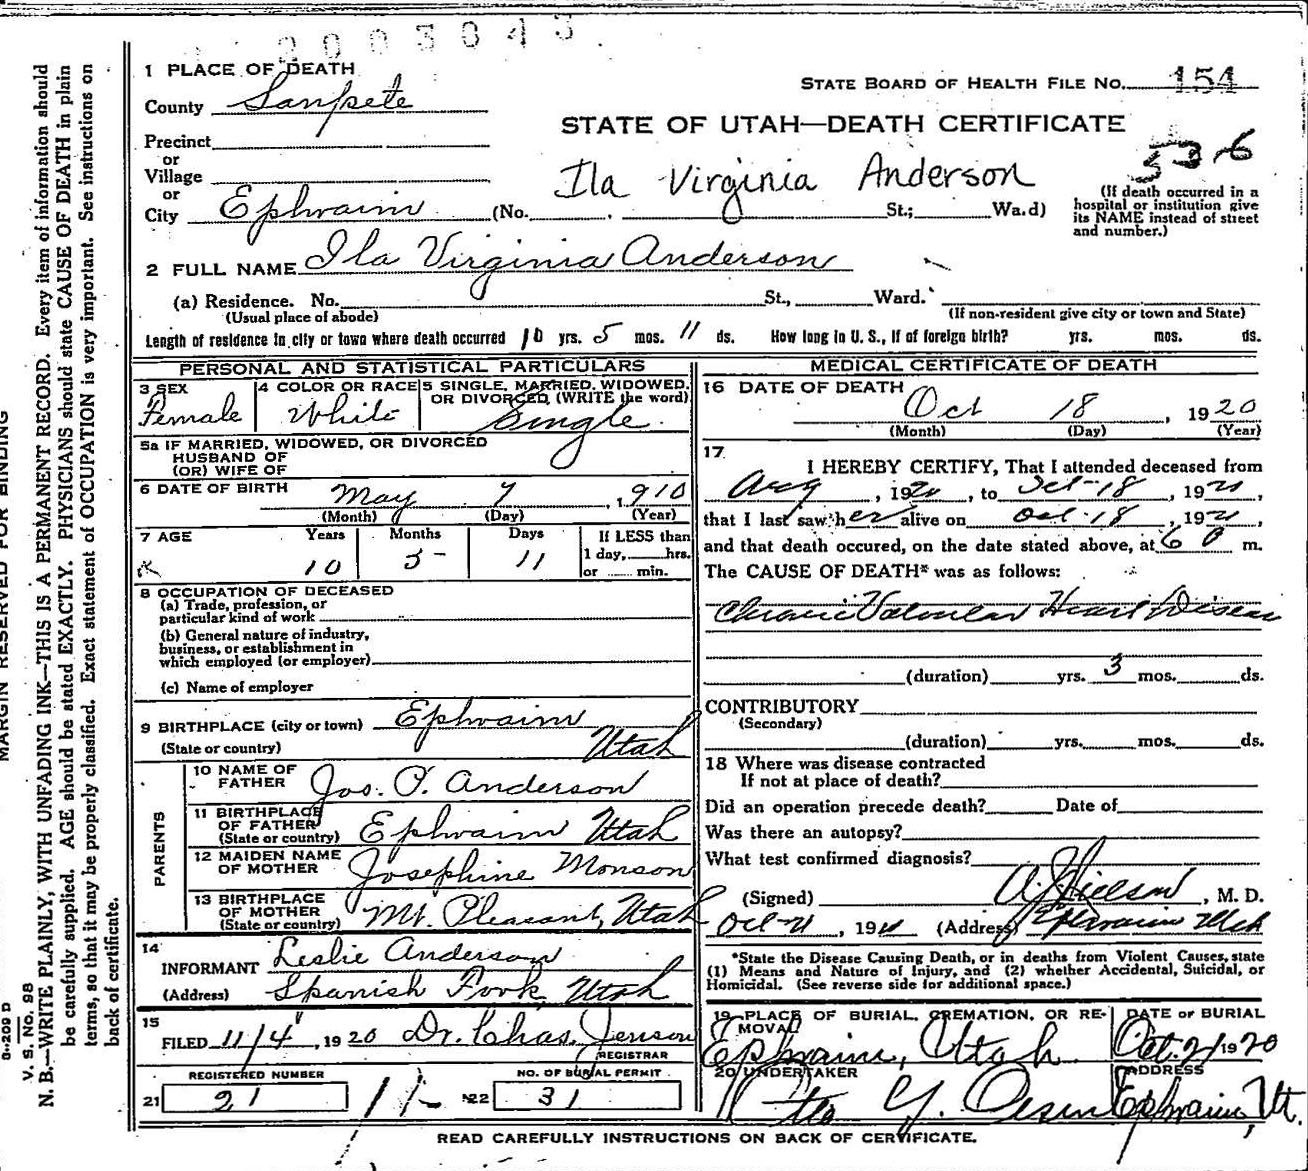 2003043
1 PLACE OF DEATH
STATE BOARD OF HEALTH FILE NO. 154
County Sanpete
STATE OF UTAH—DEATH CERTIFICATE
536
Precinct
or
Village
or
Ila Virginia Anderson
(If death occurred in a
hospital or institution give
its NAME instead of street
and number.)
City Ephraim (No. St.; Wa.d)
2 FULL NAME Ila Virginia Anderson
(a) Residence. No. St., Ward.
(Usual place of abode) (If non-resident give city or town and State)
Length of residence in city or town where death occurred 10 yrs. 5 mos. 11 ds. How long in U. S., if of foreign birth? yrs. mos. ds.
PERSONAL AND STATISTICAL PARTICULARS
3 SEX
Female
4 COLOR OR RACE
White
5 SINGLE, MARRIED, WIDOWED,
OR DIVORCED, (WRITE the word)
Single
5a IF MARRIED, WIDOWED, OR DIVORCED
HUSBAND OF
(OR) WIFE OF
6 DATE OF BIRTH May 7, 1910
(Month) (Day) (Year)
7 AGE Years Months Days
10 5 11
If LESS than
1 day, hrs.
or min.
8 OCCUPATION OF DECEASED
(a) Trade, profession, or
particular kind of work
(b) General nature of industry,
business, or establishment in
which employed (or employer)
(c) Name of employer
9 BIRTHPLACE (city or town) Ephraim
(State or country) Utah
PARENTS
10 NAME OF
FATHER Jos. P. Anderson
11 BIRTHPLACE
OF FATHER
(State or country) Ephraim Utah
12 MAIDEN NAME
OF MOTHER Josephine Monson
13 BIRTHPLACE
OF MOTHER
(State or country) Mt. Pleasant, Utah
14
INFORMANT Leslie Anderson
(Address) Spanish Fork, Utah
15
FILED 11/4, 1920 Dr. Chas. Jenson
REGISTRAR
REGISTERED NUMBER NO. OF BURIAL PERMIT
21 21 22 31
MEDICAL CERTIFICATE OF DEATH
16 DATE OF DEATH
Oct 18, 1920
(Month) (Day) (Year)
17
I HEREBY CERTIFY, That I attended deceased from
Aug, 1920, to Oct-18, 1920,
that I last saw her alive on Oct-18, 1920,
and that death occured, on the date stated above, at 6 m.
The CAUSE OF DEATH* was as follows:
Chronic Valvular Heart Disease
(duration) yrs. 3 mos. ds.
CONTRIBUTORY
(Secondary)
(duration) yrs. mos. ds.
18 Where was disease contracted
If not at place of death?
Did an operation precede death? Date of
Was there an autopsy?
What test confirmed diagnosis?
(Signed) A. J. Nielson, M. D.
Oct-21, 1920 (Address) Ephraim Utah
*State the Disease Causing Death, or in deaths from Violent Causes, state
(1) Means and Nature of Injury, and (2) whether Accidental, Suicidal, or
Homicidal. (See reverse side for additional space.)
19 PLACE OF BURIAL, CREMATION, OR RE-
MOVAL
Ephraim, Utah
DATE OF BURIAL
Oct. 21 1920
20 UNDERTAKER
Y. Olsen
ADDRESS
Ephraim, Ut.
READ CAREFULLY INSTRUCTIONS ON BACK OF CERTIFICATE.
MARGIN RESERVED FOR BINDING
N. B.—WRITE PLAINLY, WITH UNFADING INK—THIS IS A PERMANENT RECORD. Every item of information should
be carefully supplied. AGE should be stated EXACTLY. PHYSICIANS should state CAUSE OF DEATH in plain
terms, so that it may be properly classified. Exact statement of OCCUPATION is very important. See instructions on
back of certificate.
V. S. No. 98